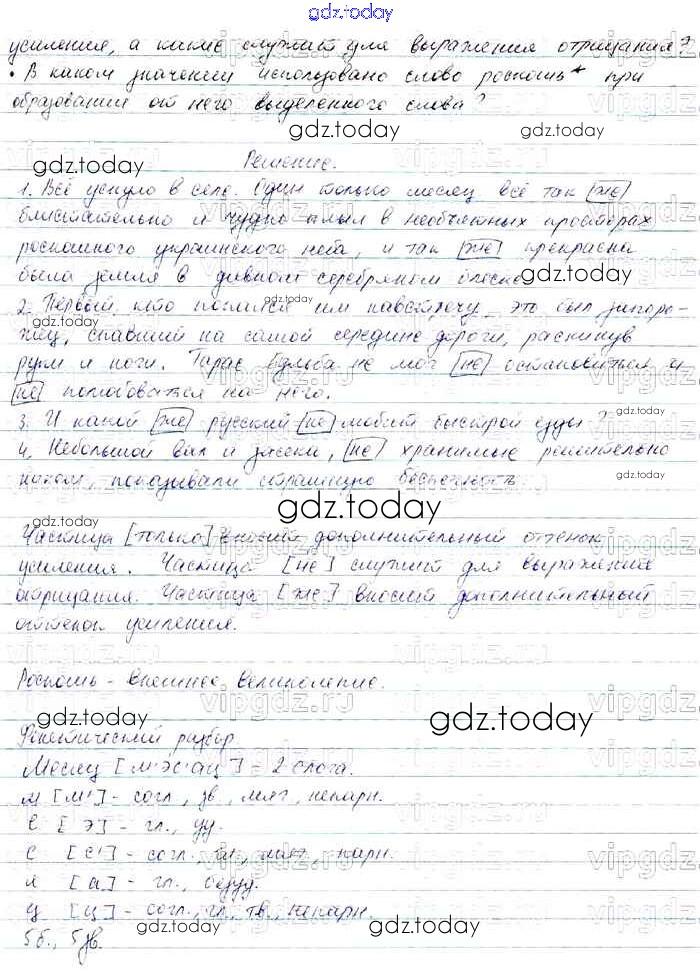 gdz.today
усиления, а какие служит для выражения отрицания?
• В каком значении использовано слово роскошь* при
образовании от него выделенного слова?
gdz.today gdz.today
gdz.today
Решение.
1. Всё уснуло в селе. Один только месяц всё так [же]
блистательно и чудно плыл в необъятных просторах
роскошного украинского неба, и так [же] прекрасна
была земля в дивном серебряном блеске. gdz.today
2. Первый, кто попался им навстречу, это был запоро- gdz.today
жец, спавший на самой середине дороги, раскинув
руки и ноги. Тарас Бульба не мог [не] остановиться и gdz.today
[не] полюбоваться на него.
3. И какой [же] русский [не] любит быстрой езды? gdz.today
4. Небольшой вал и засека, [не] хранимые решительно
никем, показывали страшную беспечность gdz.today
gdz.today
Частица [только] вносит дополнительный оттенок
усиления. Частица [не] служит для выражения
отрицания. Частица [же] вносит дополнительный
оттенок усиления.
Роскошь - внешнее великолепие.
gdz.today gdz.today
Фонетический разбор
Месяц [м'эс'ац] - 2 слога.
м [м'] - согл., зв., мяг., непарн.
е [э] - гл., уд.
с [с'] - согл., гл., мяг., парн.
я [а] - гл., безуд.
ц [ц] - согл., гл., тв., непарн.
5 б., 5 зв. gdz.today gdz.today
vipgdz.ru